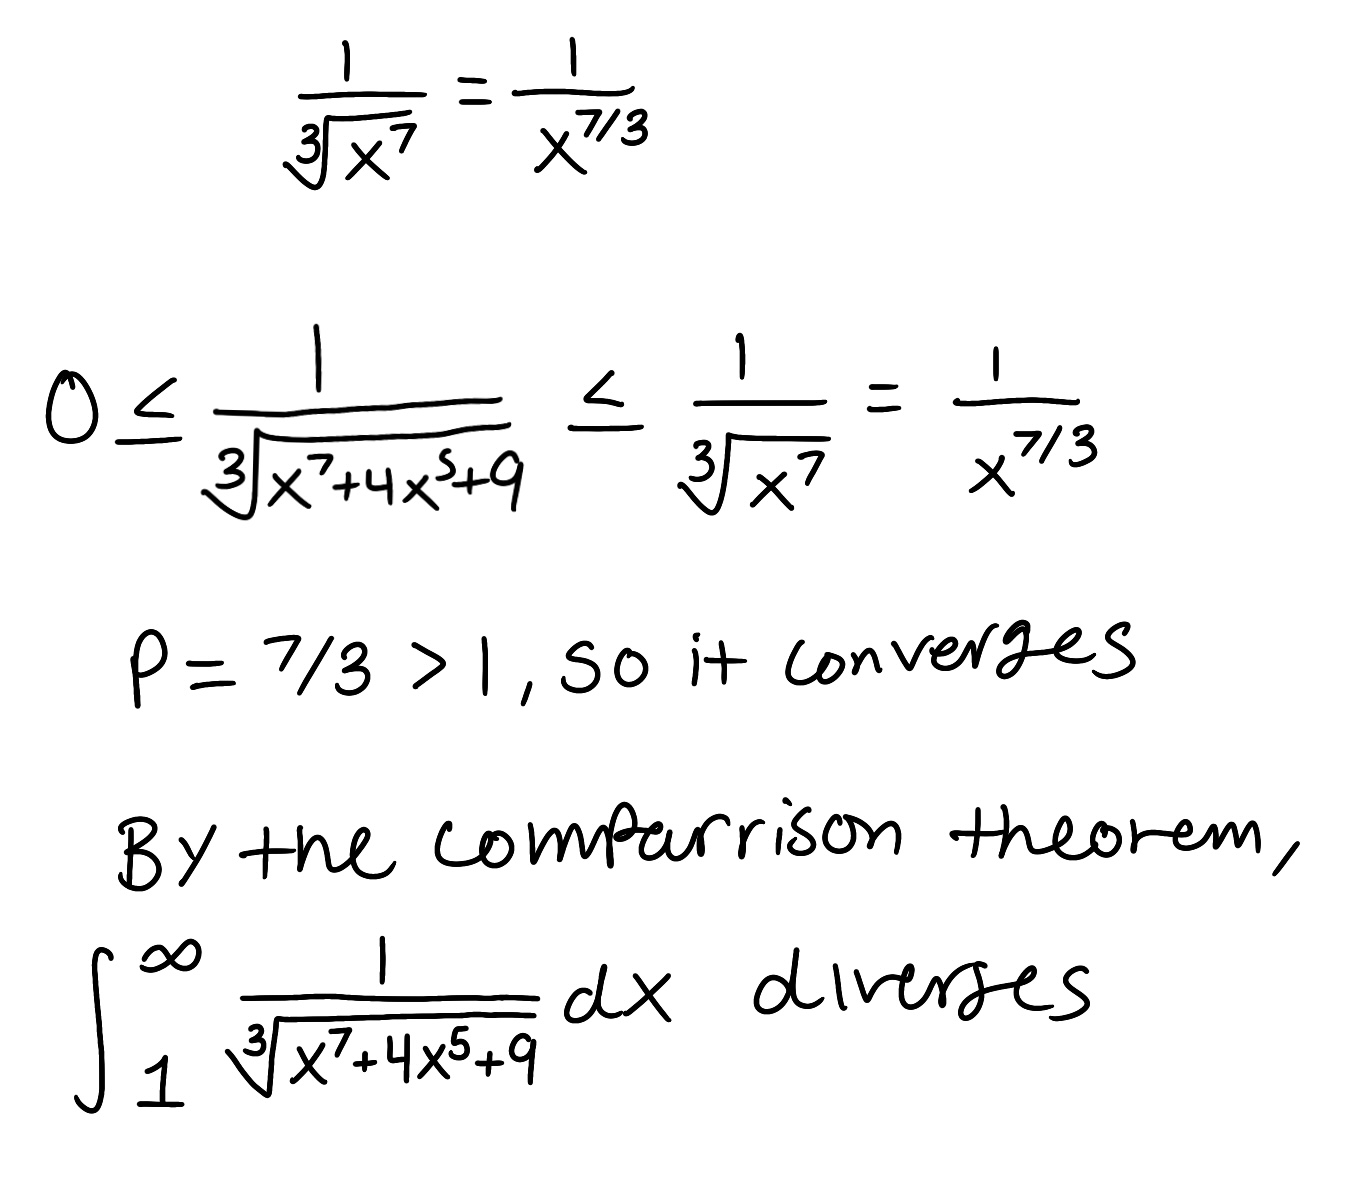 1/∛(x^7) = 1/x^(7/3)
0 ≤ 1/∛(x^7+4x^5+9) ≤ 1/∛(x^7) = 1/x^(7/3)
P = 7/3 > 1, so it converges
By the comparrison theorem,
∫_1^∞ 1/∛(x^7+4x^5+9) dx diverges